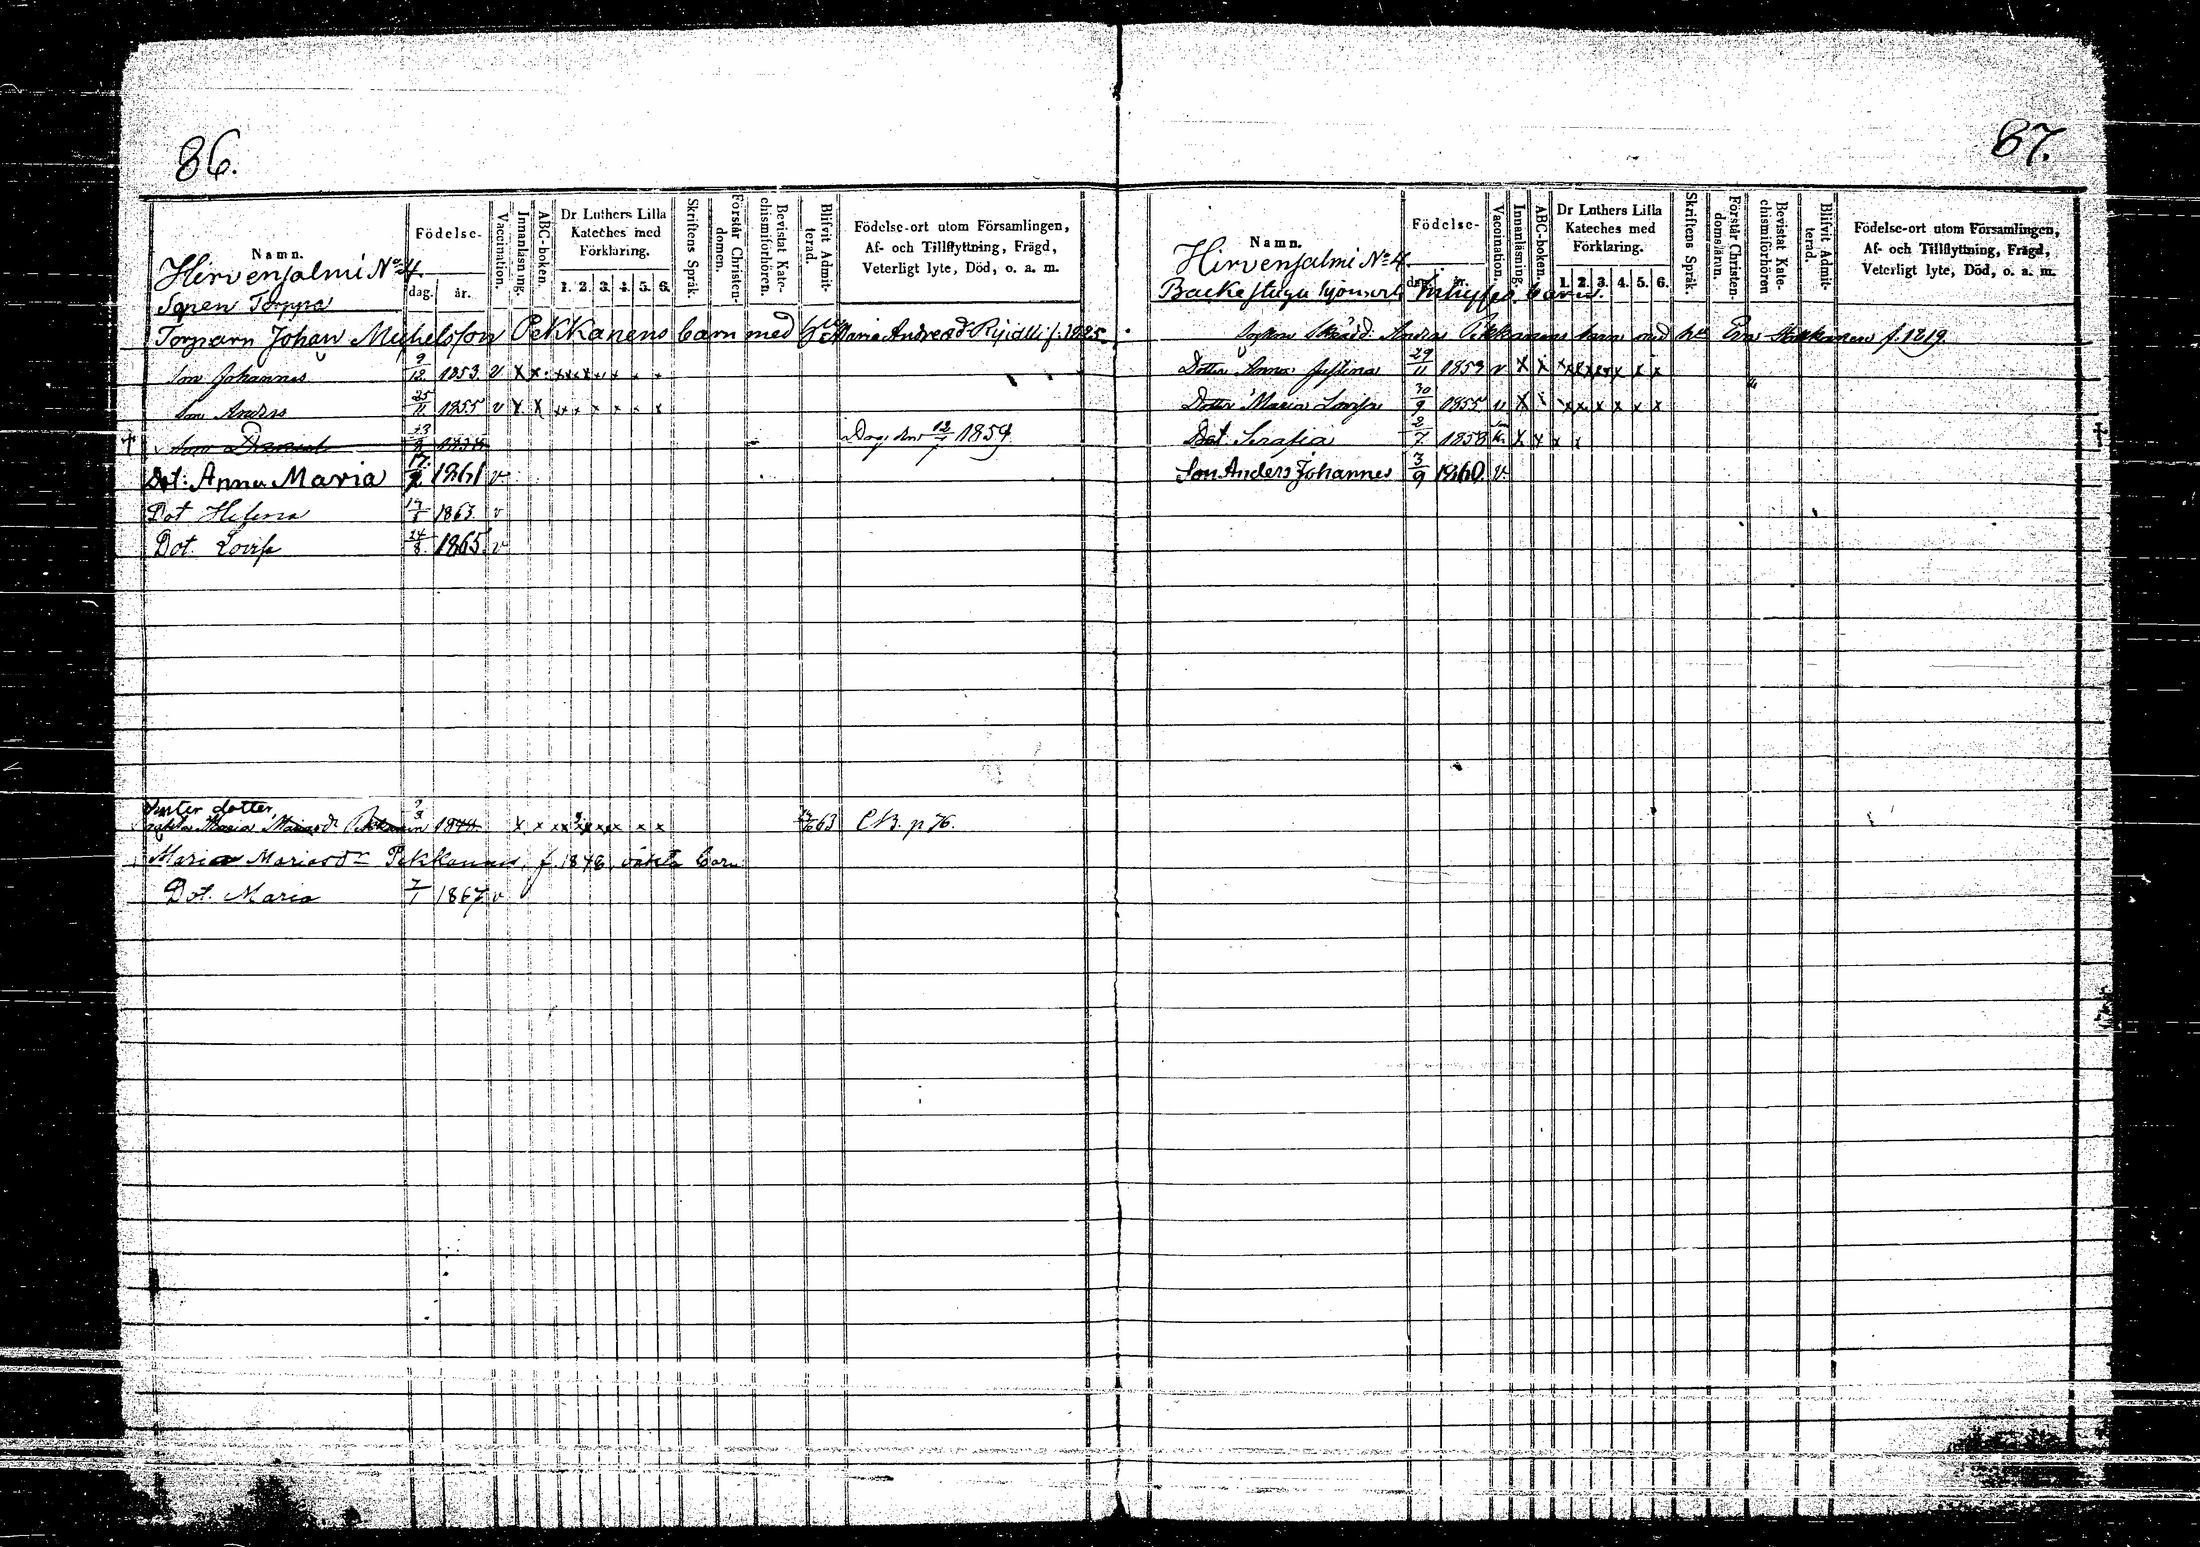 86.
Namn.
Födelse-
dag. år.
Vaccination.
Innanläsning.
ABC-boken.
Dr Luthers Lilla Kateches med Förklaring.
1. 2. 3. 4. 5. 6.
Skriftens Språk.
Förstår Christen-domen.
Bevistat Kate-chismiförhören.
Blifvit Admit-terad.
Födelse-ort utom Församlingen,
Af- och Tillflyttning, Frägd,
Veterligt lyte, Död, o. a. m.
Hirvensalmi No 4.
Torppa
Torparn Johan Michelsson Pekkanens barn med Maria Andersd: f. 1825
Son Johannes 9/12 1853. v x x x x x x x x
Son Anders 25/11 1855 v x x x x x x x x
† Son Daniel 1858 Dog den 1859
Dot: Anna Maria 17 1861 v
Dot Helena 1863 v
Dot. Lovisa 24/8 1865 v
dotter
Maria Mariasdr Pekkanen 1848 x x x x x x x x 63 CB. p 76.
Maria Mariasdr Pekkanens, f. 1846, oäkta barn
Dot. Maria 7/1 1867 v
87.
Namn.
Födelse-
dag. år.
Vaccination.
Innanläsning.
ABC-boken.
Dr Luthers Lilla Kateches med Förklaring.
1. 2. 3. 4. 5. 6.
Skriftens Språk.
Förstår Christen-domsläran.
Bevistat Kate-chismiförhören
Blifvit Admit-terad.
Födelse-ort utom Församlingen,
Af- och Tillflyttning, Frägd,
Veterligt lyte, Död, o. a. m.
Hirvensalmi No 4.
Backstugu hjonens barn.
Anders Pekkanens barn med f. 1819.
Dotter Anna Justina 29/11 1852 v x x x x x x x x
Dotter Maria Lovisa 30/9 1855 v x x x x x x x
Dot Serafia 2/7 1858 x x x x
Son Anders Johannes 3/9 1860. v.
†